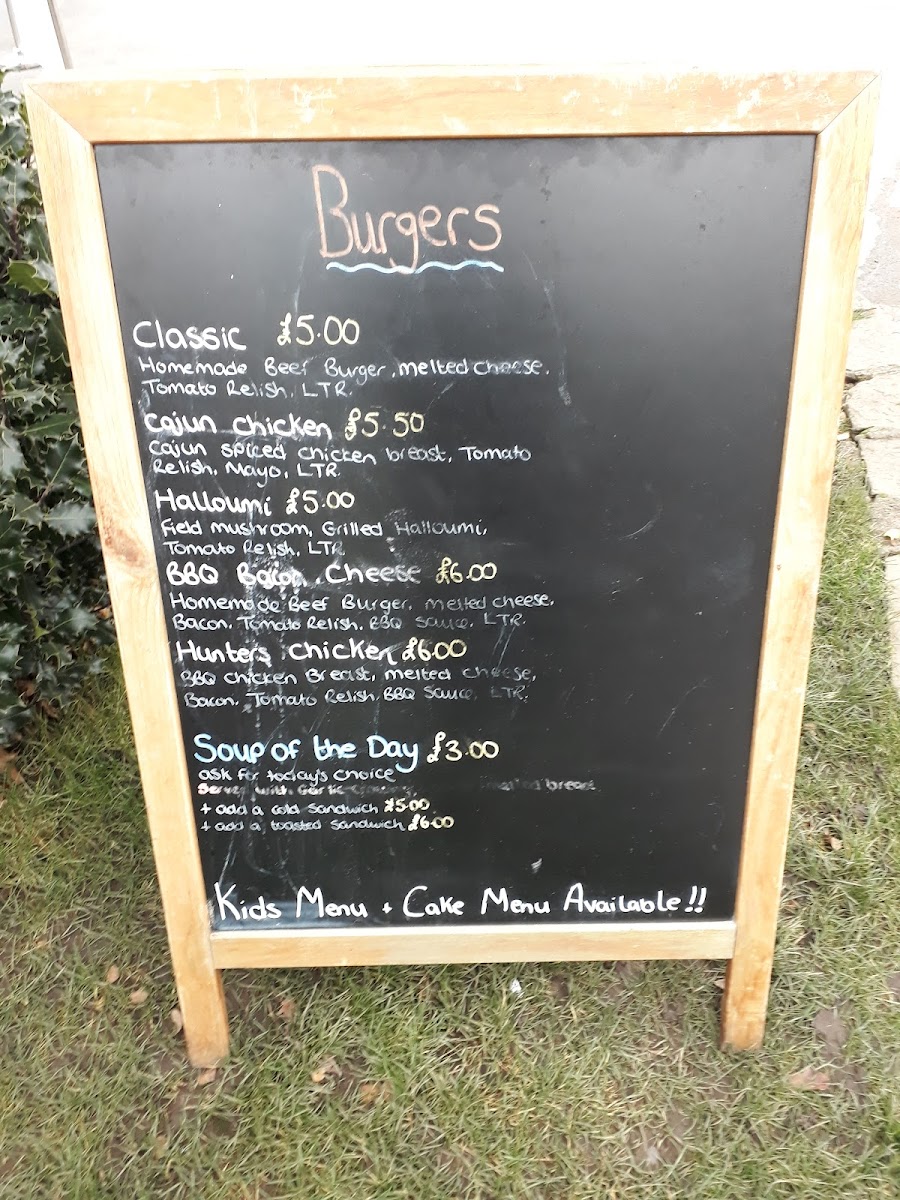 Burgers
Classic £5.00
Homemade Beef Burger, melted cheese,
Tomato Relish, LTR.
Cajun chicken £5.50
Cajun spiced chicken breast, Tomato
Relish, Mayo, LTR
Halloumi £5.00
Field mushroom, Grilled Halloumi,
Tomato Relish, LTR
BBQ Bacon Cheese £6.00
Homemade Beef Burger, melted cheese,
Bacon, Tomato Relish, BBQ Sauce, LTR.
Hunters chicken £6.00
BBQ chicken Breast, melted cheese,
Bacon, Tomato Relish, BBQ Sauce, LTR.
Soup of the Day £3.00
ask for today's choice
Served with Garlic
+ add a cold sandwich £5.00
+ add a toasted sandwich £6.00
Kids Menu + Cake Menu Available!!